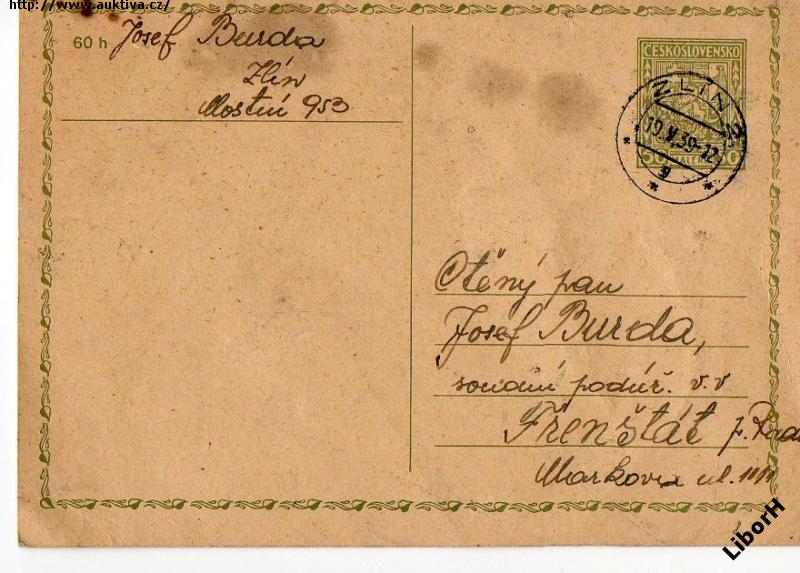 http://www.auktiva.cz/
60 h Josef Burda
Zlín
Mostní 953
ČESKOSLOVENSKO
50 HALÉŘŮ
ZLÍN 2
19.V.39-12
g
Ctěný pan
Josef Burda,
soudní podúř. v.v
Frenštát p. Rad
Markova ul.
LiborH